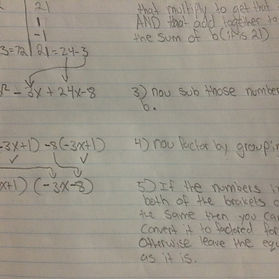 21
1
-1
3=72 21=24-3
² - 3x + 24x - 8
-3x+1) -8(-3x+1)
x+1) (-3x-8)
that multiply to get that
AND that add together to
the sum of b (it's 21)
3) now sub those number
b.
4) now factor by groupin
5) If the numbers in
both of the brackets a
the same then you ca
convert it to factored for
Otherwise leave the eq
as it is.